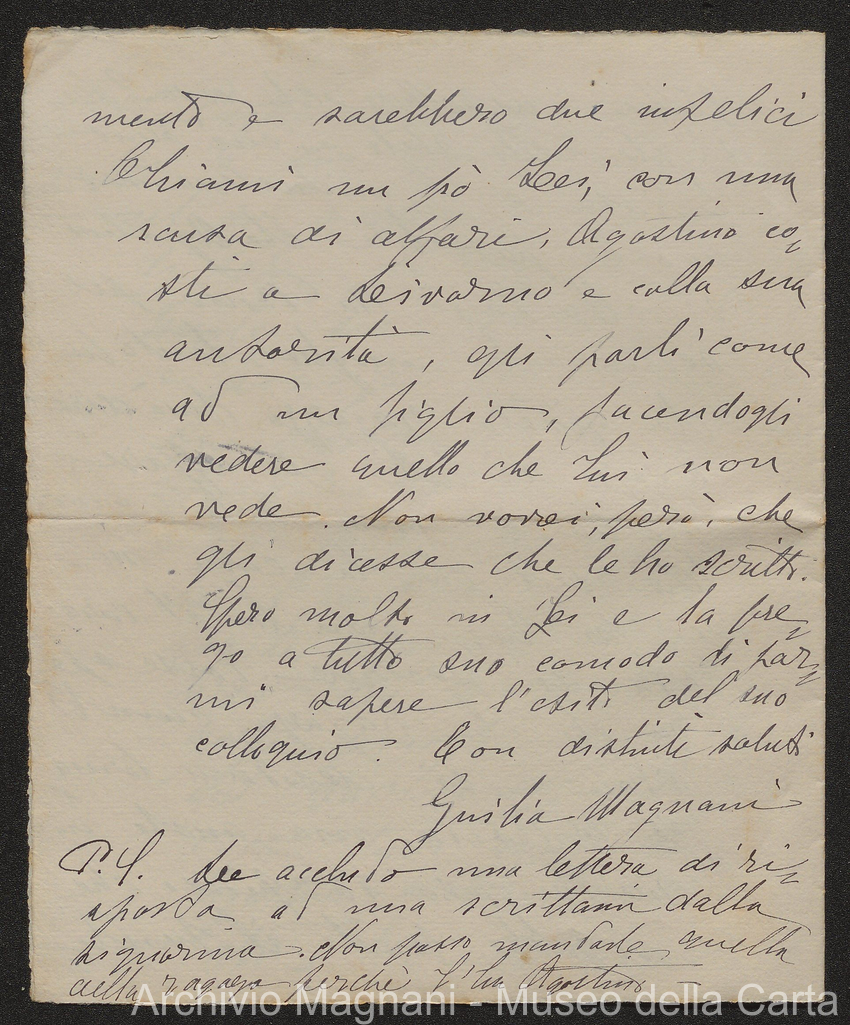 mento e sarebbero due infelici
Chiami un pò Lei, con una
scusa di affari, Agostino co=
sti a Livorno e colla sua
autorità, gli parli come
ad un figlio, facendogli
vedere quello che Lui non
vede. Non vorrei, però, che
gli dicesse che le ho scritto.
Spero molto in Lei e la pre=
go a tutto suo comodo di far=
mi sapere l'esito del suo
colloquio. Con distinti saluti
Giulia Magnani
P.S. Le accludo una lettera di ri=
sposta ad una scrittami dalla
signorina. Non posso mandarle quella
della ragazza perchè l'ha Agostino —
Archivio Magnani - Museo della Carta